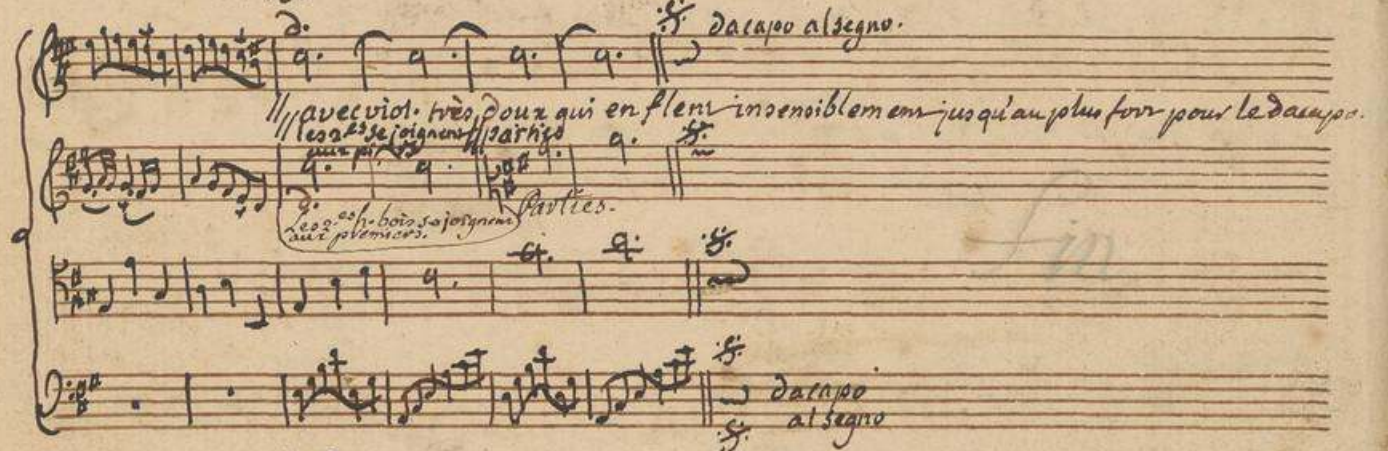 d. dacapo al segno.
avec viol. très doux qui enflent insensiblement jusqu'au plus fort pour le dacapo.
les 2.es se joignent parties
aux
d. Parties.
Les 2.es h-bois se joignent
aux premiers.
fin
dacapo
al segno